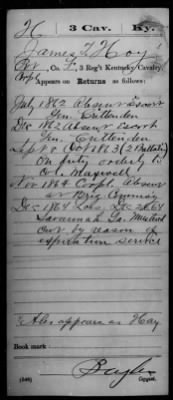 H 3 Cav. Ky.
James T Hoy
Pvt, Co. F, 3 Reg't Kentucky Cavalry.
Corpl
Appears on Returns as follows:
July 1862 Absent Escort
Gen. Crittenden
Dec 1862 Absent Escort
Gen. Crittenden
Sept & Oct 1863 (2 Battalion)
On duty orderly to
Col. Maxwell
Nov 1864 Corpl. Absent
at Brig
Dec 1864 Loss, Dec 24, 64
Savannah Ga. Mustered
out by reason of
expiration service
Also appears as Hay
Book mark:
(546) Copyist.